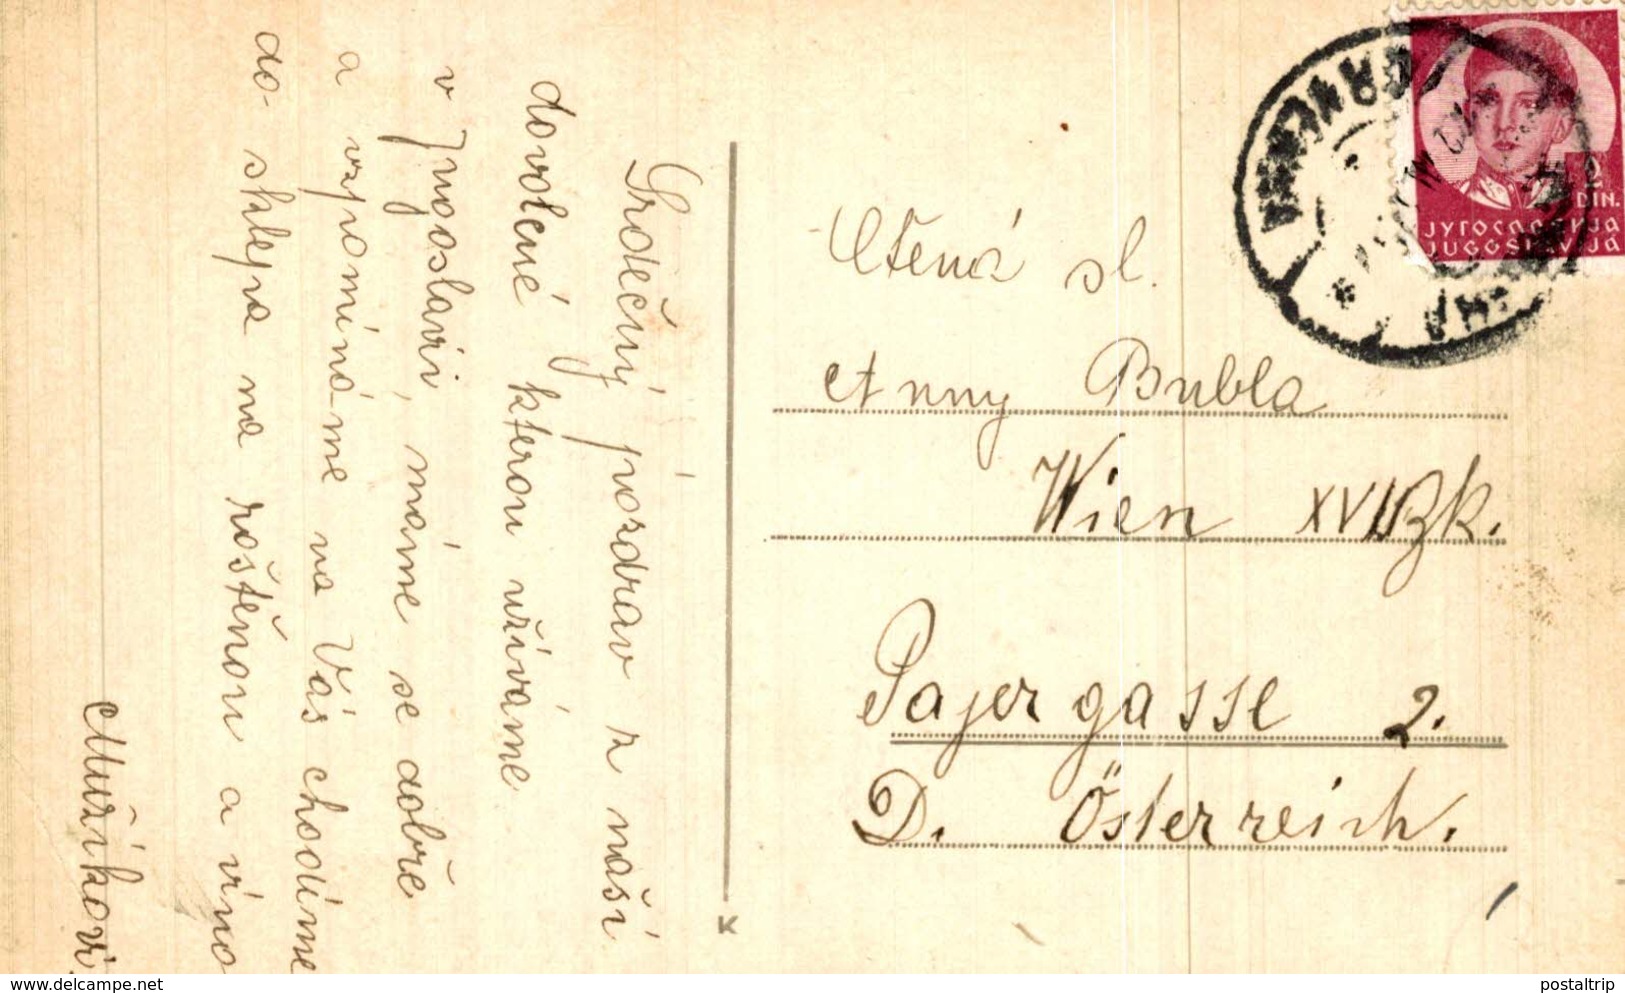 Srdečný pozdrav z naší
dovolené kterou užíváme
v Jugoslavii, máme se dobře
a vzpomínáme na Vás chodíme
do sklepa na roštěnou a víno
Mužíkovi.
Ctěná sl.
Anny Bubla
Wien XVII Bzk.
Pajergasse 2.
D. Österreich.
2
DIN.
ЈУГОСЛАВИЈА
JUGOSLAVIJA
K
www.delcampe.net
postaltrip